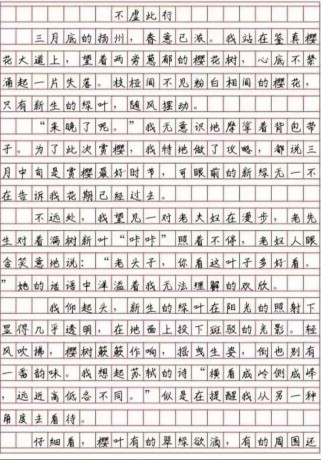 不虚此行
三月底的扬州，春意已浓。我站在鉴真樱
花大道上，望着两旁葱郁的樱花树，心底不禁
涌起一片失落。枝桠间不见粉白相间的樱花，
只有新生的绿叶，随风摆动。
“来晚了呢。”我无意识地摩挲着背包带
子。为了此次赏樱，我特地做了攻略，都说三
月中旬是赏樱最好时节，可眼前的新绿无一不
在告诉我花期已经过去。
不远处，我望见一对老夫妇在漫步，老先
生对着满树新叶“咔咔”照着不停，老妇人眼
含笑意地说：“老头子，你看这叶子多好看。
”她的话语中洋溢着我无法理解的欢欣。
我仰起头，新生的绿叶在阳光的照射下
显得几乎透明，在地面上投下斑驳的光影。轻
风吹拂，樱树簌簌作响，摇曳生姿，倒也别有
一番韵味。我想起苏轼的诗“横看成岭侧成峰
，远近高低各不同。”似是在提醒我从另一种
角度去看待。
仔细看，樱叶有的翠绿欲滴，有的周围还